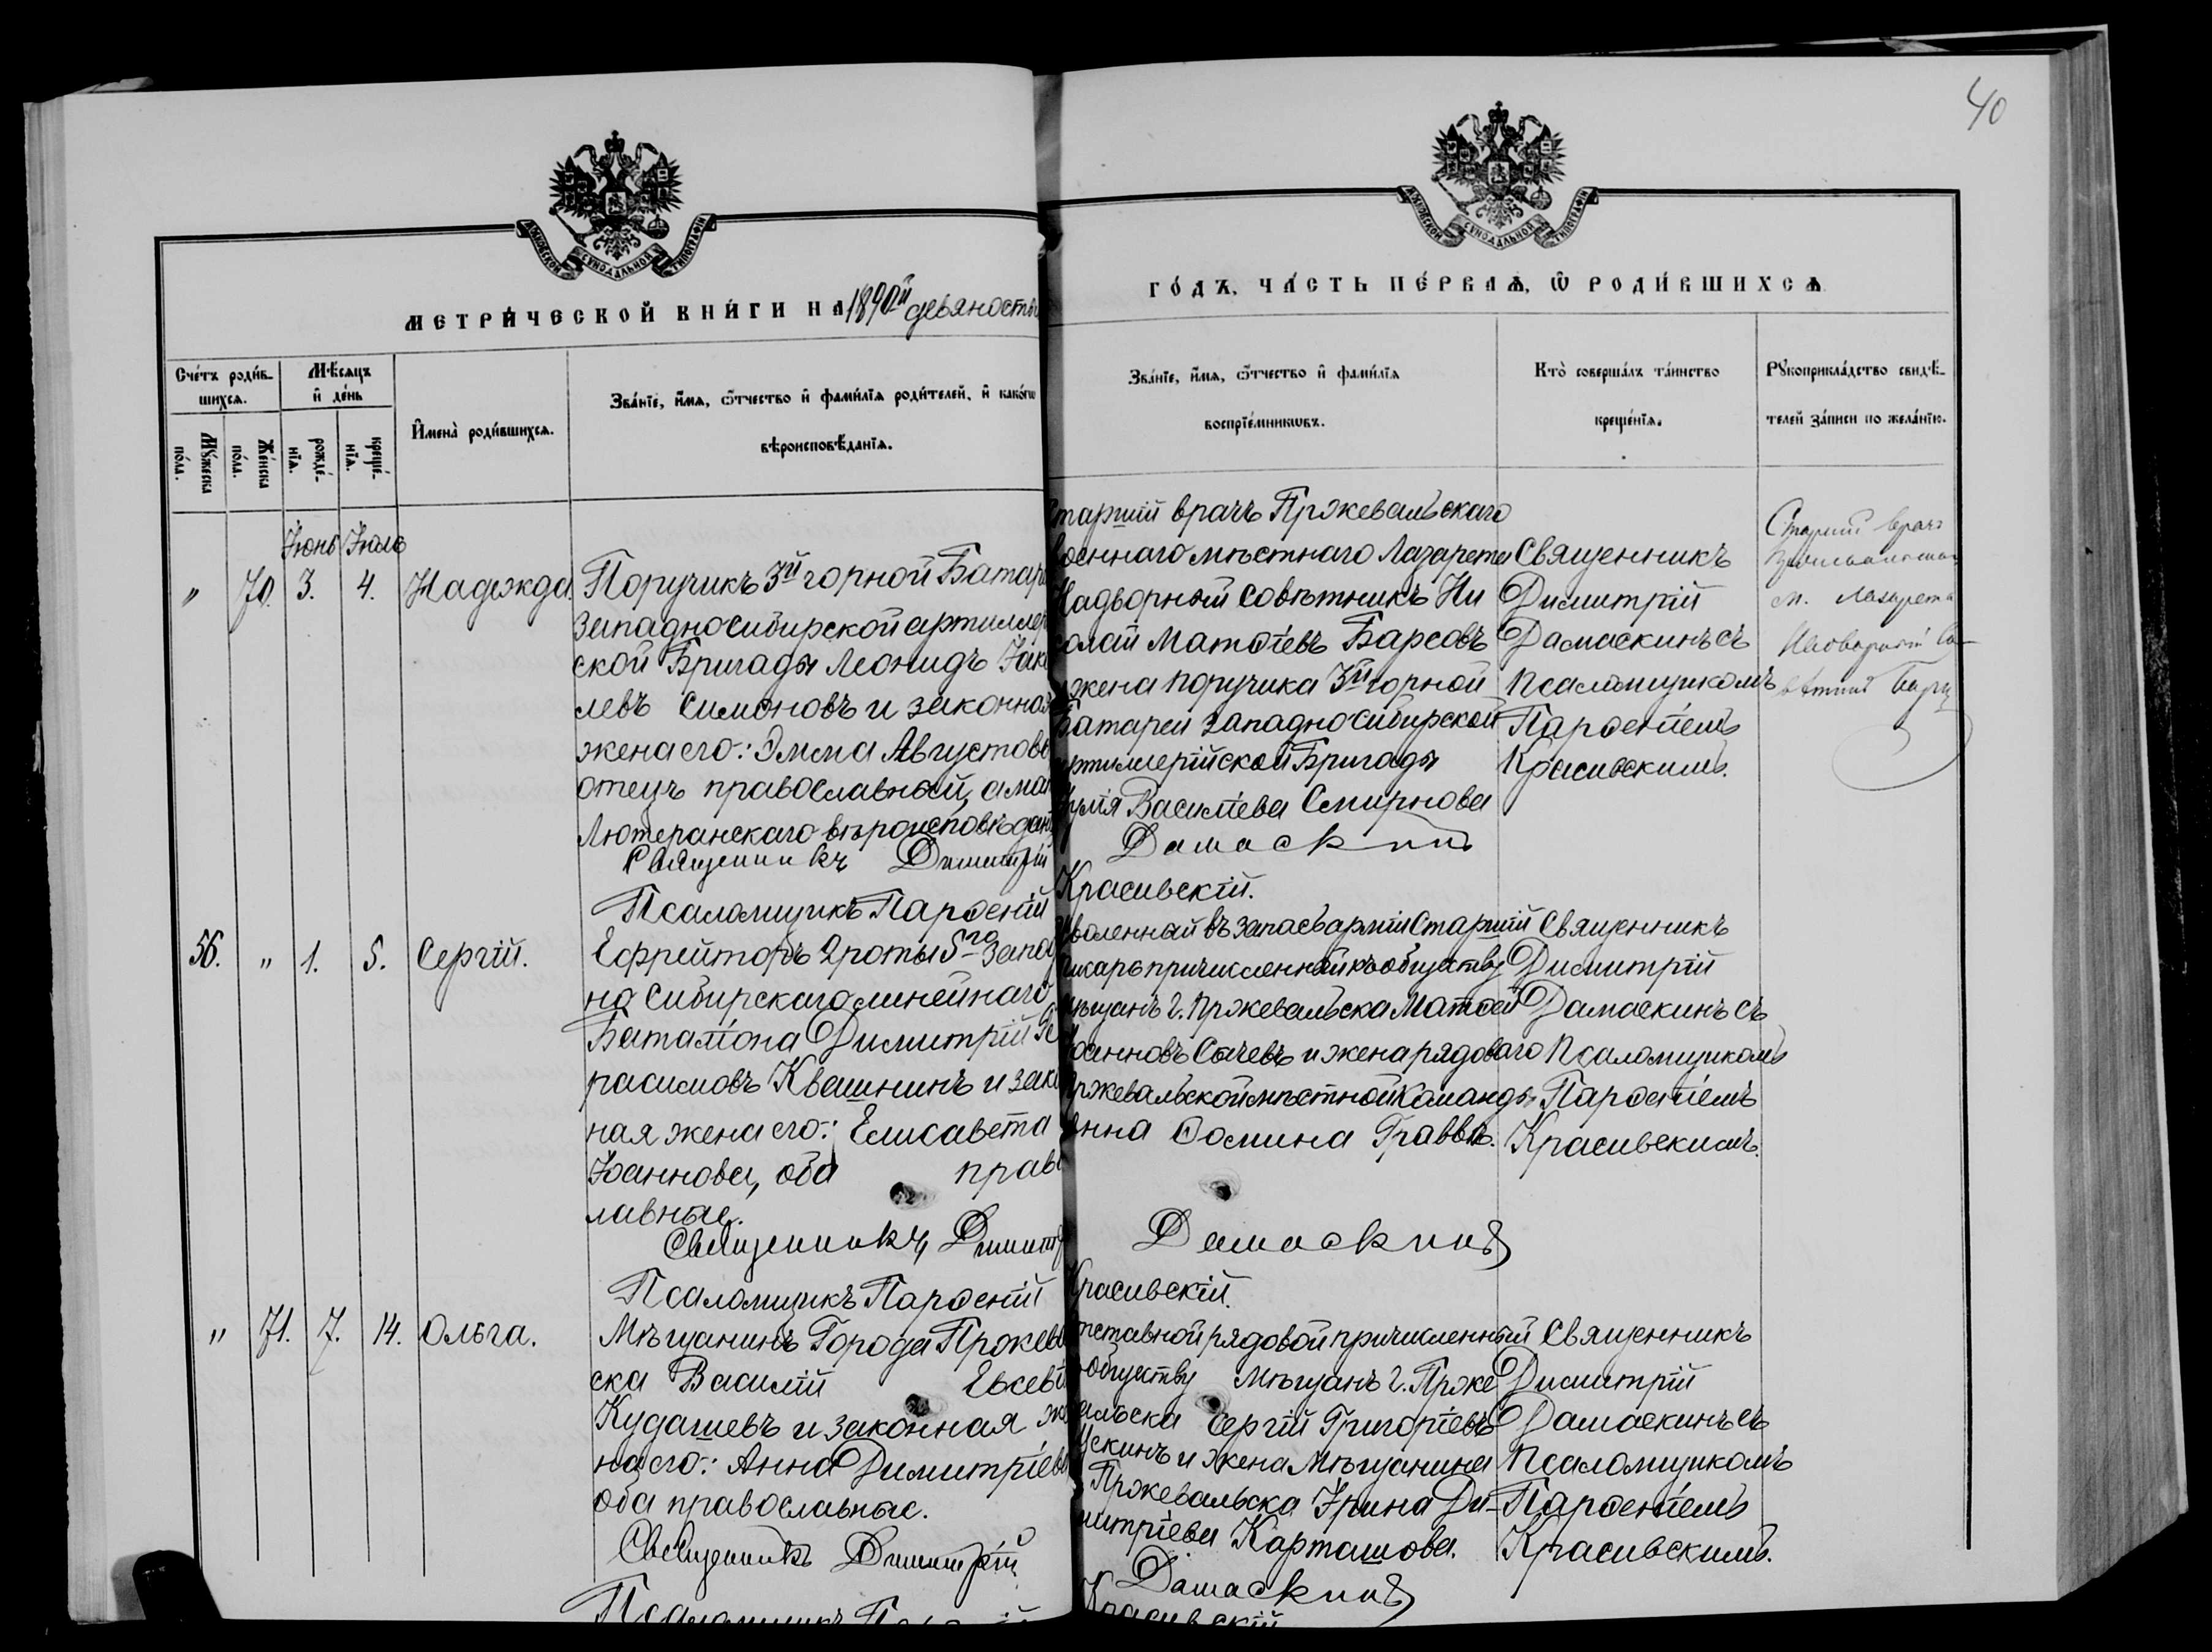 40
МОСКОВСКОЙ СѴНОДАЛЬНОЙ ТИПОГРАФІИ
МОСКОВСКОЙ СѴНОДАЛЬНОЙ ТИПОГРАФІИ
МЕТРИ́ЧЕСКОЙ КНИ́ГИ НА 1890й девяносты
ГО́ДЪ, ЧА́СТЬ ПЕ́РВАѦ, Ѿ РОДИ́ВШИХСѦ
Сче́тъ роди́в-
шихсѧ.
Мѣ́сяцъ
и҆ де́нь
Му́жеска
по́ла.
Же́нска
по́ла.
рожде́-
нїѧ.
креще́-
нїѧ.
И҆мена̀ роди́вшихсѧ.
Зва́нїе, и҆́мѧ, ѻ҆́тчество и҆ фами́лїѧ роди́телей, и҆ како́гѡ
вѣроисповѣ́данїѧ.
Зва́нїе, и҆́мѧ, ѻ҆́тчество и҆ фами́лїѧ
воспрїе́мникѡвъ.
Кто̀ соверша́лъ та́инство
креще́нїѧ.
Рꙋкоприкла́дство свидѣ́-
телей за́писи по жела́нїю.
Іюнь Іюль
" 70. 3. 4. Надежда
Поручикъ 3й горной Батаре
Западно Сибирской артиллер
ской Бригады Леонидъ Іако
левъ Симоновъ и законная
жена его: Эмма Августов
отецъ православный, а мат
Лютеранскаго вѣроисповѣдан
Священникъ Димитрій
Псаломщикъ Парѳеній
Старшій врачъ Пржевальскаго
Военнаго мѣстнаго Лазарета
Надворный Совѣтникъ Ни
колай Матѳіевъ Барсовъ
жена поручика 3й горной
Батареи Западно Сибирской
артиллерійской Бригады
Юлія Василіева Смирнова
Дамаскинъ
Красивскій.
Священникъ
Димитрій
Дамаскинъ съ
Псаломщикомъ
Парѳеніемъ
Красивскимъ.
Старшій врачъ
м. Лазарета
Надворный Со-
вѣтникъ
56. " 1. 5. Сергій.
Ефрейторъ 2 роты 5го Запад
но Сибирскаго линейнаго
Баталіона Димитрій Ге
расимовъ Квашнинъ и зако
ная жена его: Елисавета
Іоаннова, оба прав
лавные.
Священникъ Димитр
Псаломщикъ Парѳеній
Уволенный въ запасъ арміи Старшій
писарь причисленный къ обществу
мѣщанъ г. Пржевальска Матѳей
Іоанновъ Сычевъ и жена рядоваго
Пржевальской мѣстной Команды
Анна Ѳомина Гравва.
Дамаскинъ
Красивскій.
Священникъ
Димитрій
Дамаскинъ съ
Псаломщикомъ
Парѳеніемъ
Красивскимъ.
" 71. 7. 14. Ольга.
Мѣщанинъ Города Пржева
ска Василій Евсеві
Кудашевъ и законная же
на его: Анна Димитріева
оба православные.
Священникъ Димитрій
Псаломщикъ
отставной рядовой причисленный
обществу мѣщанъ г. Прже
вальска Сергій Григоріевъ
и жена Мѣщанина
Пржевальска Ирина Ди-
митріева Карташова.
Дамаскинъ
Красивскій
Священникъ
Димитрій
Дамаскинъ съ
Псаломщикомъ
Парѳеніемъ
Красивскимъ.